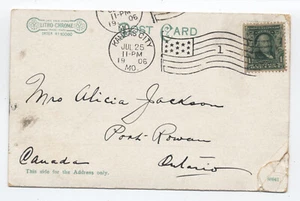 LITHO-CHROME
POST CARD
KANSAS CITY
JUL 25
11-PM
19 06
MO.
1
Mrs Alicia Jackson
Port Rowan
Canada
Ontario
This side for the Address only.